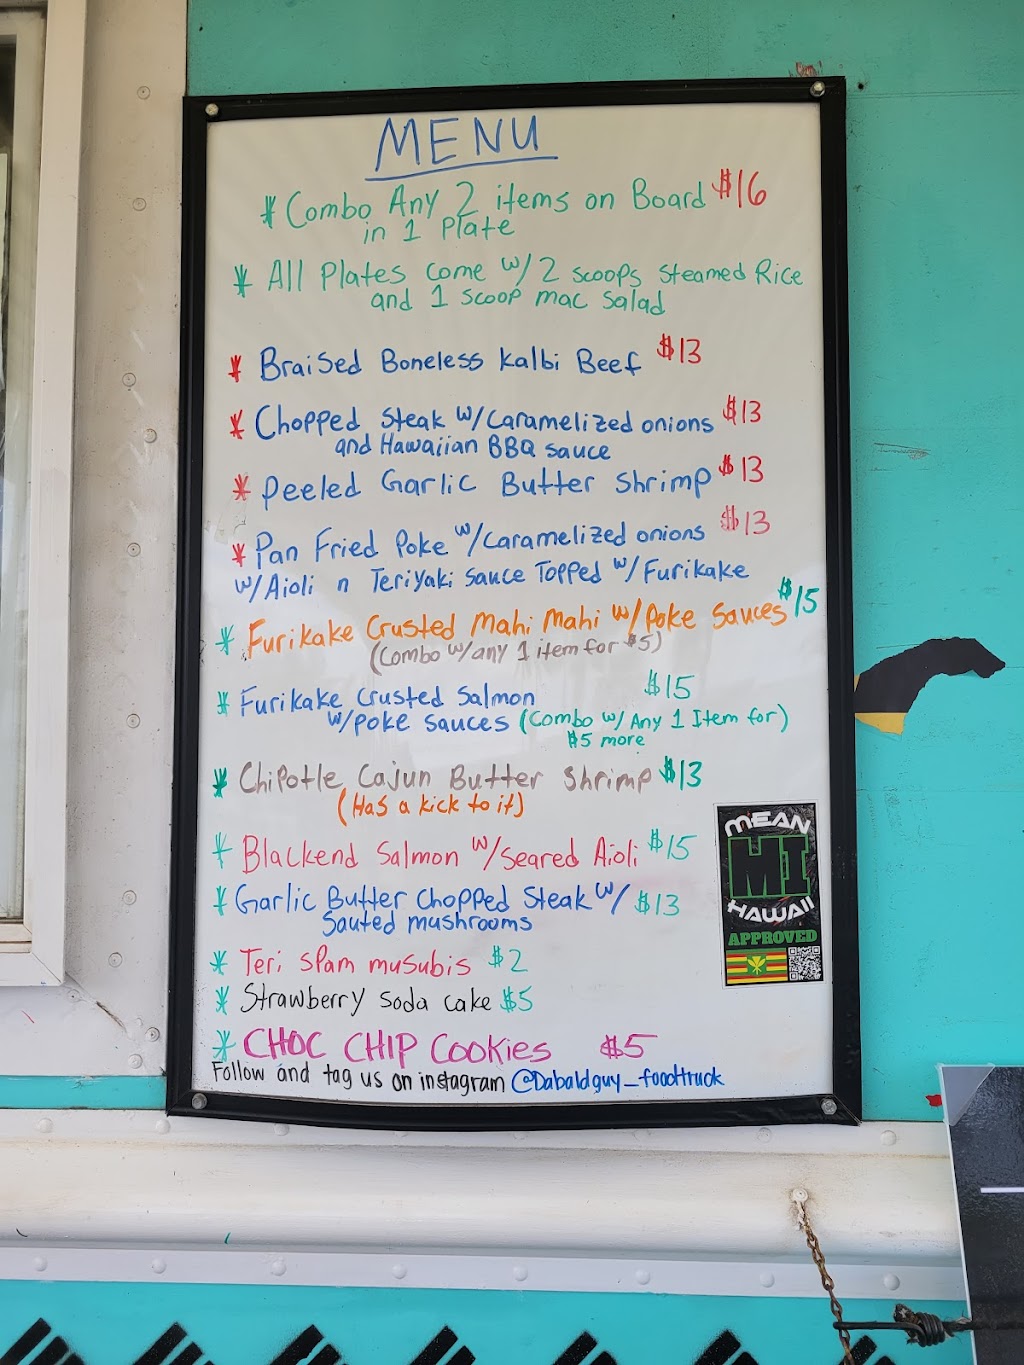 MENU
* Combo Any 2 items on Board $16
in 1 Plate
* All Plates come w/2 scoops steamed Rice
and 1 scoop mac salad
* Braised Boneless Kalbi Beef $13
* Chopped Steak w/Caramelized onions $13
and Hawaiian BBQ sauce
* Peeled Garlic Butter Shrimp $13
* Pan Fried Poke w/Caramelized onions $13
w/Aioli n Teriyaki sauce Topped w/Furikake
* Furikake Crusted Mahi Mahi w/Poke sauces $15
(Combo w/any 1 item for $5)
* Furikake Crusted Salmon $15
w/Poke sauces (Combo w/ Any 1 Item for)
$5 more
* Chipotle Cajun Butter Shrimp $13
(Has a kick to it)
* Blackend Salmon w/Seared Aioli $15
* Garlic Butter Chopped Steak w/ $13
Sauted mushrooms
* Teri spam musubis $2
* Strawberry soda cake $5
* CHOC CHIP Cookies $5
Follow and tag us on instagram @Dabaldguy_foodtruck
MEAN
HI
HAWAII
APPROVED